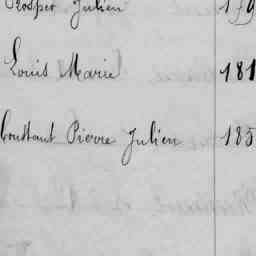 Prosper Julien 179
Louis Marie 181
Constant Pierre Julien 185